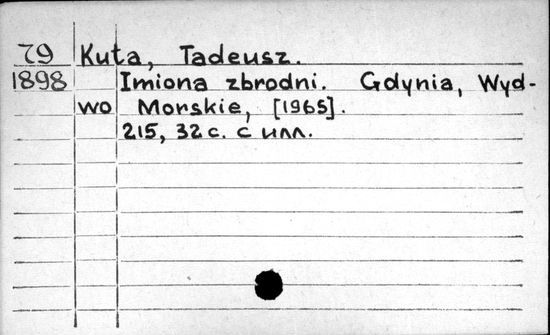 79 Kuta, Tadeusz.
1898 Imiona zbrodni. Gdynia, Wyd-
wo Morskie, [1965].
215, 32 с. с илл.